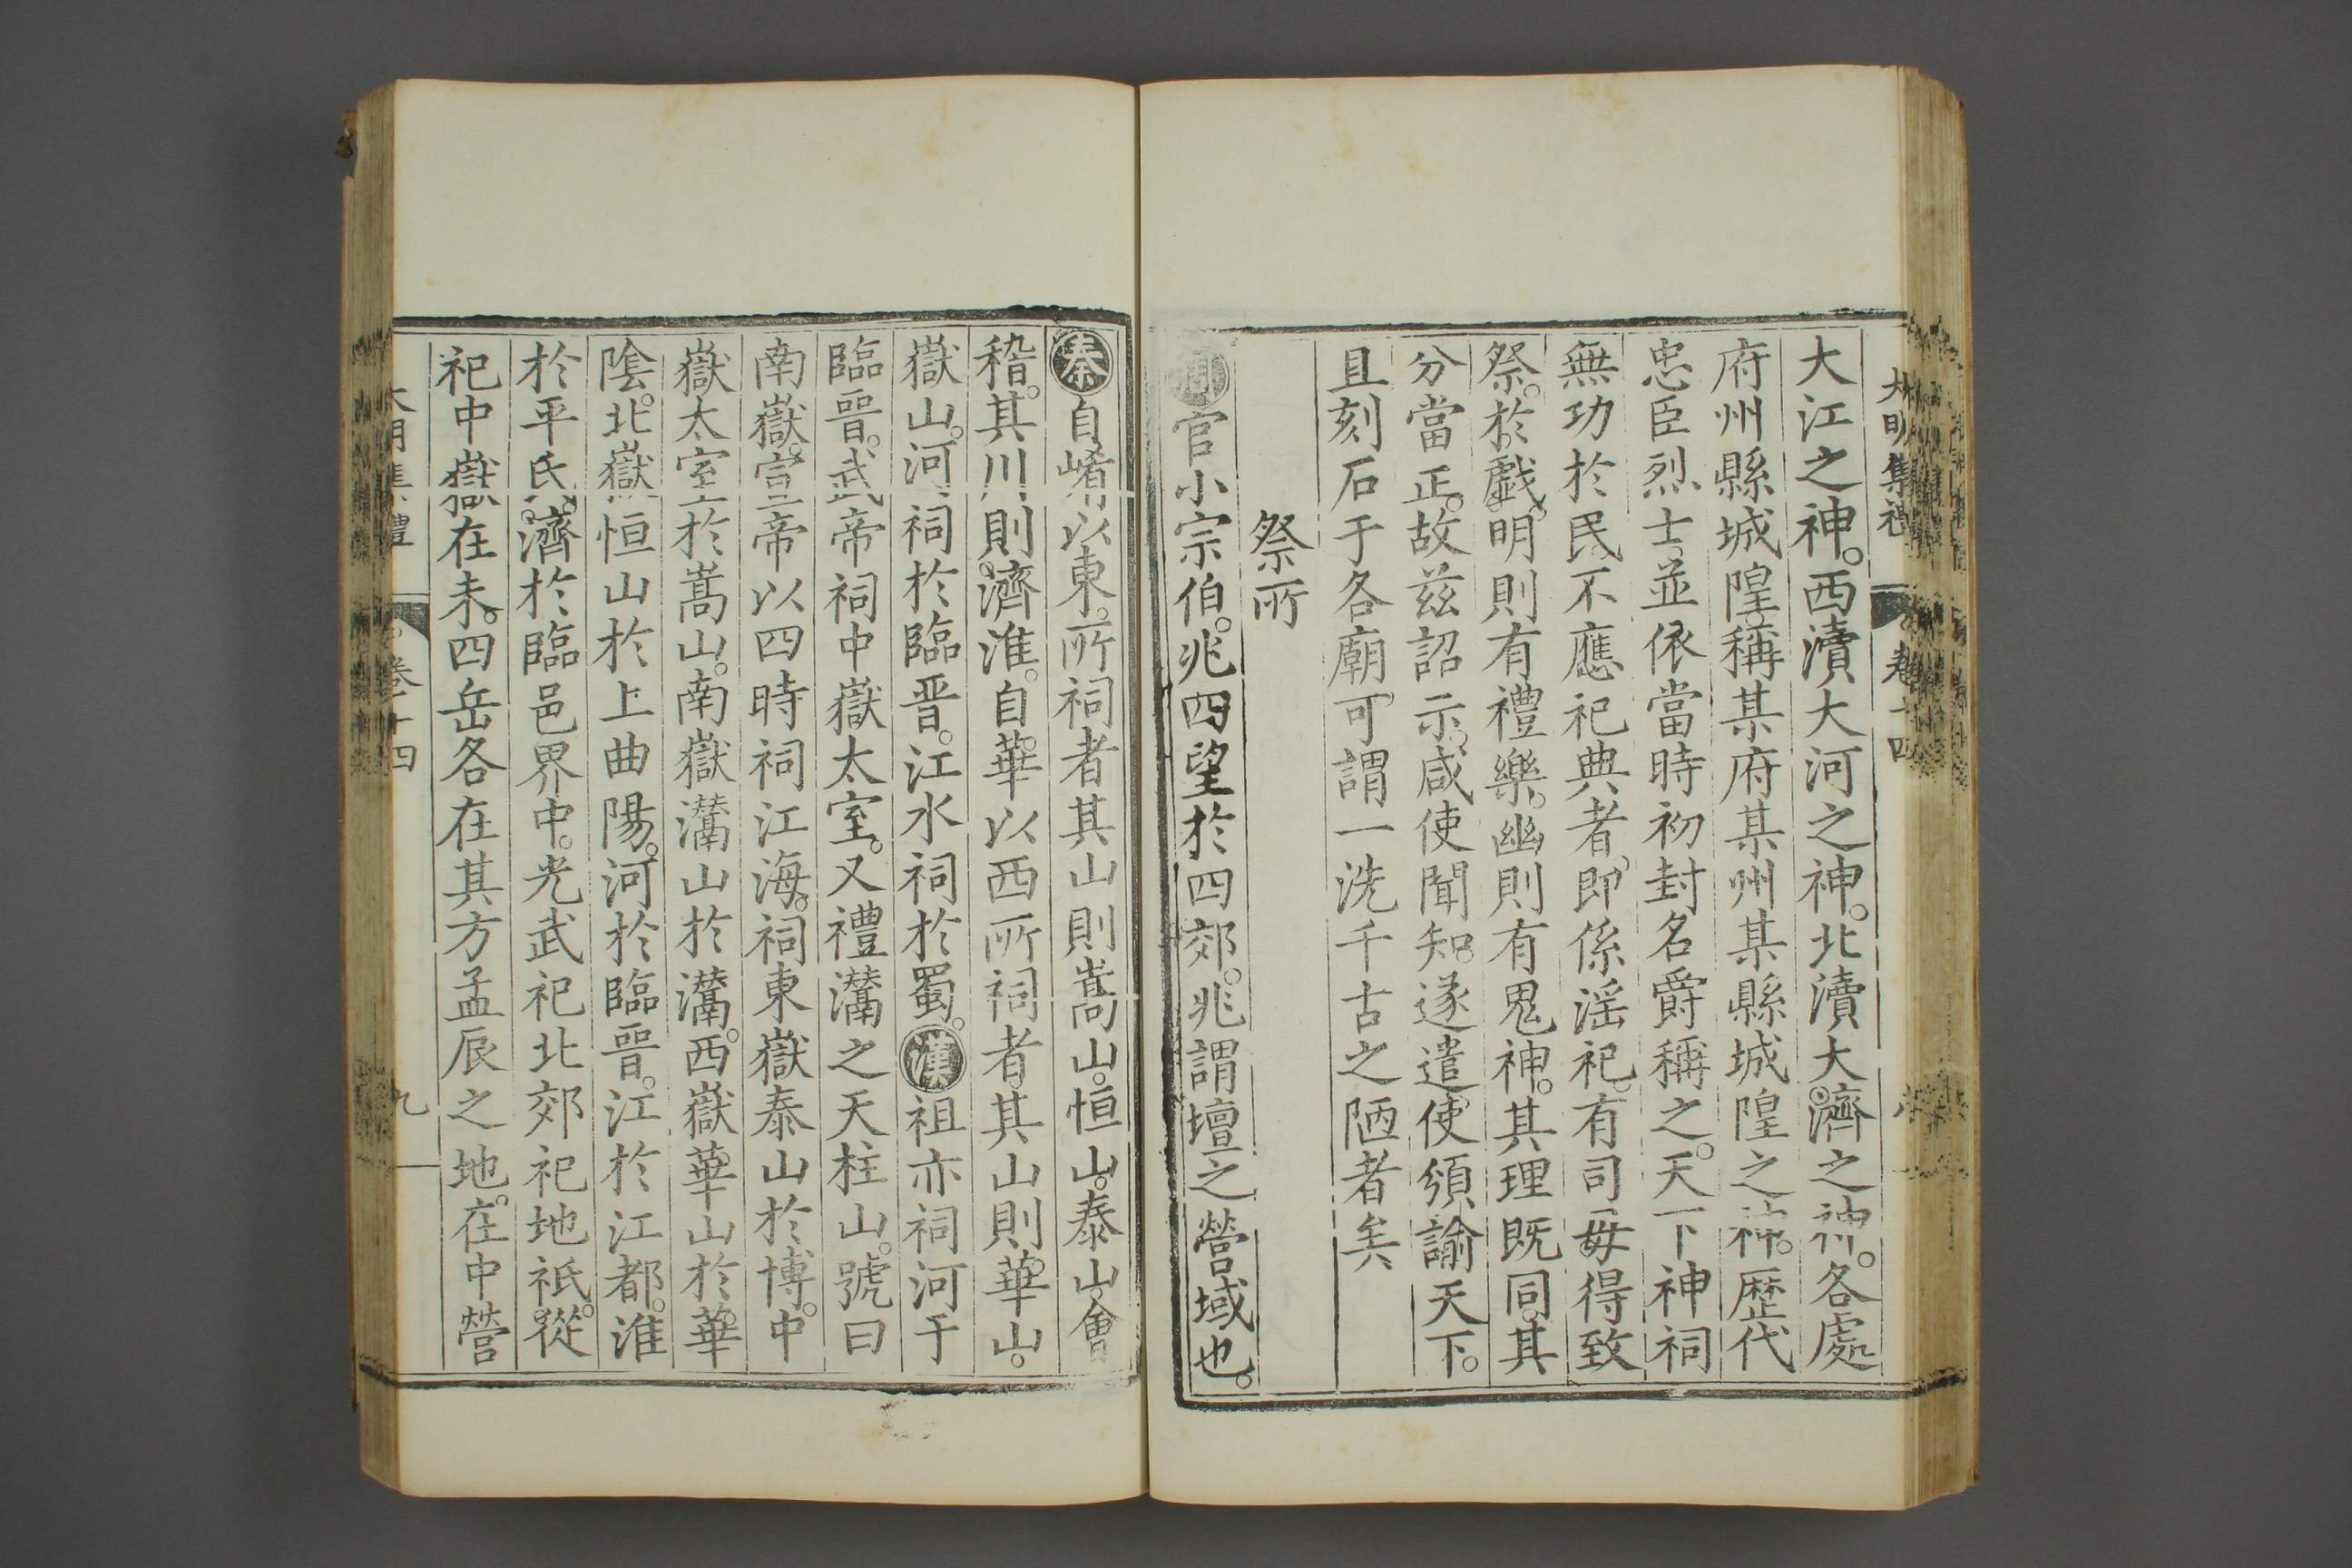 大明集禮 卷十四 八
大江之神。西瀆大河之神。北瀆大濟之神。各處
府州縣城隍。稱某府某州某縣城隍之神。歷代
忠臣烈士。並依當時初封名爵稱之。天下神祠
無功於民。不應祀典者。即係淫祀。有司毋得致
祭。於戲。明則有禮樂。幽則有鬼神。其理既同。其
分當正。故茲詔示。咸使聞知。遂遣使頒諭天下。
且刻石于各廟。可謂一洗千古之陋者矣
祭所
周官小宗伯。兆四望於四郊。兆謂壇之營域也。
秦自崤以東。所祠者其山則嵩山。恒山。泰山。會
稽。其川則濟淮。自華以西所祠者。其山則華山。
嶽山。河祠於臨晋。江水祠於蜀。漢祖亦祠河于
臨晋。武帝祠中嶽太室。又禮灊之天柱山。號曰
南嶽。宣帝以四時祠江海。祠東嶽泰山於博。中
嶽太室於嵩山。南嶽灊山於灊。西嶽華山於華
陰。北嶽恒山於上曲陽。河於臨晋。江於江都。淮
於平氏。濟於臨邑界中。光武祀北郊祀地祇。從
祀中嶽在未。四岳各在其方孟辰之地。在中營
大明集禮 卷十四 九